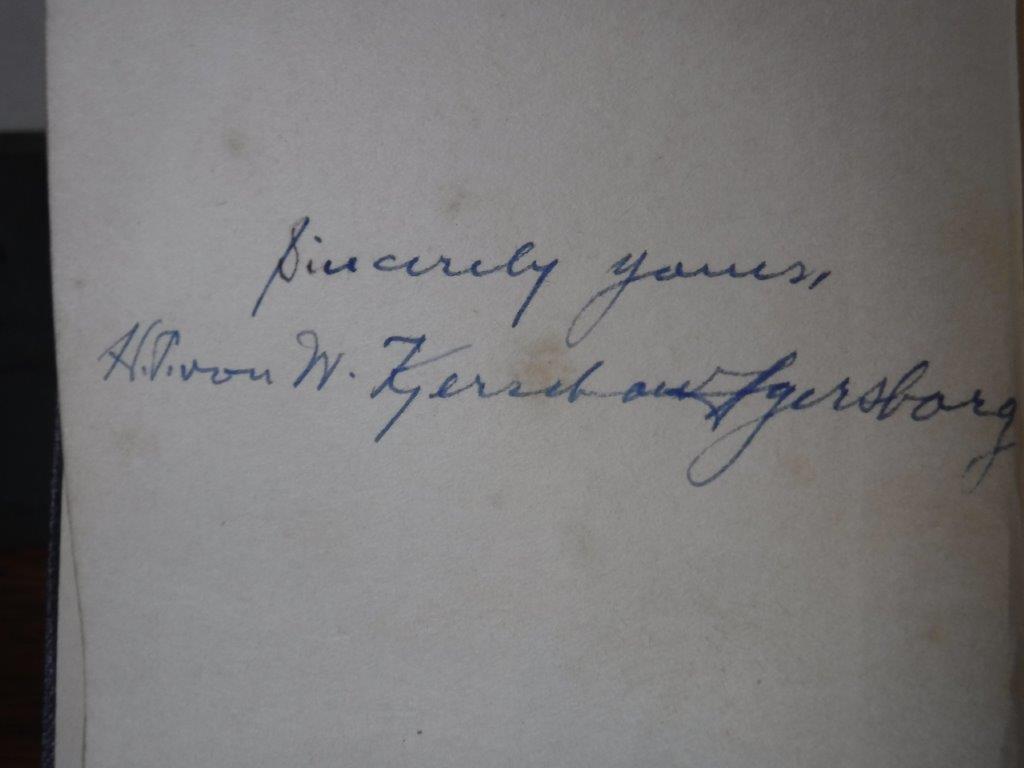 Sincerely yours,
H.P. von W. Kjerschow Agersborg